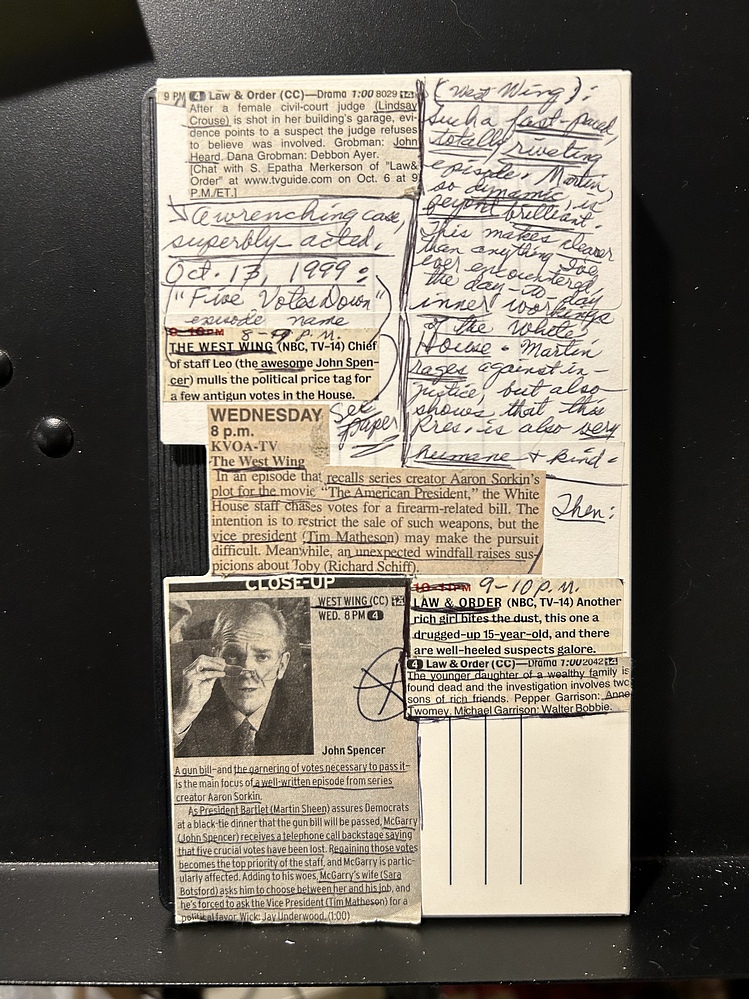 9 PM 4 Law & Order (CC)—Drama 1:00 8029
After a female civil-court judge (Lindsay
Crouse) is shot in her building's garage, evi-
dence points to a suspect the judge refuses
to believe was involved. Grobman: John
Heard. Dana Grobman: Debbon Ayer.
[Chat with S. Epatha Merkerson of "Law&
Order" at www.tvguide.com on Oct. 6 at 9
P.M./ET.]
A wrenching case,
superbly acted.
Oct. 13, 1999:
"Five Votes Down"
episode name
8-9 P.M.
THE WEST WING (NBC, TV-14) Chief
of staff Leo (the awesome John Spen-
cer) mulls the political price tag for
a few antigun votes in the House.
See
paper
WEDNESDAY
8 p.m.
KVOA-TV
The West Wing
In an episode that recalls series creator Aaron Sorkin's
plot for the movie "The American President," the White
House staff chases votes for a firearm-related bill. The
intention is to restrict the sale of such weapons, but the
vice president (Tim Matheson) may make the pursuit
difficult. Meanwhile, an unexpected windfall raises sus-
picions about Toby (Richard Schiff).
(West Wing):
Such a fast-paced,
totally riveting
episode. Martin,
so dynamic, is
beyond brilliant.
This makes clearer
than anything I've
ever encountered,
the day-to-day
inner workings
of the White
House. Martin
rages against in-
justice, but also
shows that this
Pres. is also very
humane + kind.
Then:
CLOSE-UP
WEST WING (CC)
WED. 8 PM 4
John Spencer
A gun bill—and the garnering of votes necessary to pass it—
is the main focus of a well-written episode from series
creator Aaron Sorkin.
As President Bartlet (Martin Sheen) assures Democrats
at a black-tie dinner that the gun bill will be passed, McGarry
(John Spencer) receives a telephone call backstage saying
that five crucial votes have been lost. Regaining those votes
becomes the top priority of the staff, and McGarry is partic-
ularly affected. Adding to his woes, McGarry's wife (Sara
Botsford) asks him to choose between her and his job, and
he's forced to ask the Vice President (Tim Matheson) for a
political favor. Wick: Jay Underwood. (1:00)
10-11PM 9-10 P.M.
LAW & ORDER (NBC, TV-14) Another
rich girl bites the dust, this one a
drugged-up 15-year-old, and there
are well-heeled suspects galore.
4 Law & Order (CC)—Drama 1:00 2042
The younger daughter of a wealthy family is
found dead and the investigation involves two
sons of rich friends. Pepper Garrison: Anne
Twomey. Michael Garrison: Walter Bobbie.